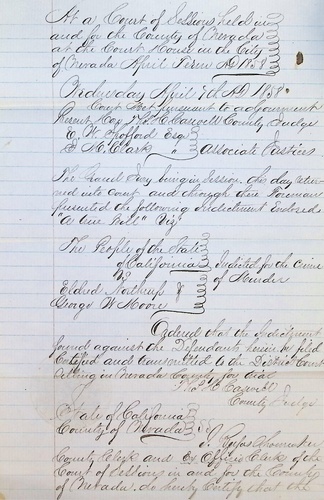 At a Court of Sessions held in
and for the County of Nevada
at the Court House in the City
of Nevada April Term AD 1858
Wednesday April 7th AD 1858
Court Met pursuant to adjournment
Present Hon Thos H Caswell County Judge
E. W. Esq
Clark " Associate Justices
The Grand Jury being in Session, this day
into Court and through their Foreman
presented the following indictment Endorsed
"A true Bill" Viz
The People of the State
of California
vs
Indicted for the Crime
of Murder
George W Moore
Ordered that the Indictment
found against the Defendants herein be filed
Certified and transmitted to the District Court
sitting in Nevada County for trial
Thos H Caswell
County Judge
State of California
County of Nevada
I, Rufus Shoemaker
County Clerk and Ex Officio Clerk of the
Court of Sessions in and for the County
of Nevada, do hereby Certify that the